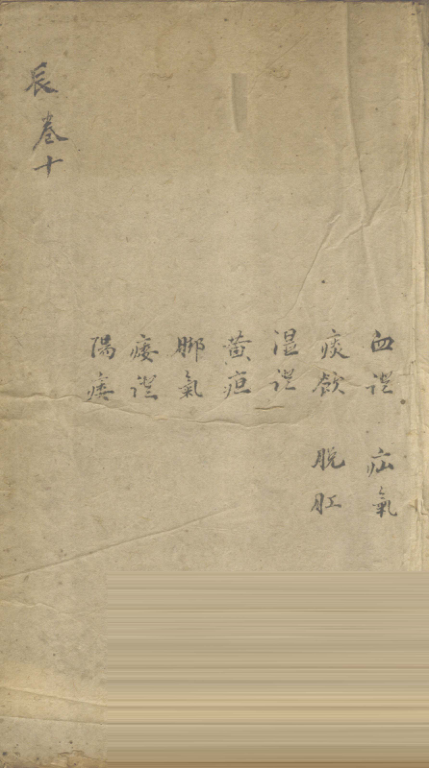 血證 疝氣
痰飲 脫肛
湿證
黄疸
脚氣
痿證
陽痿
卷十